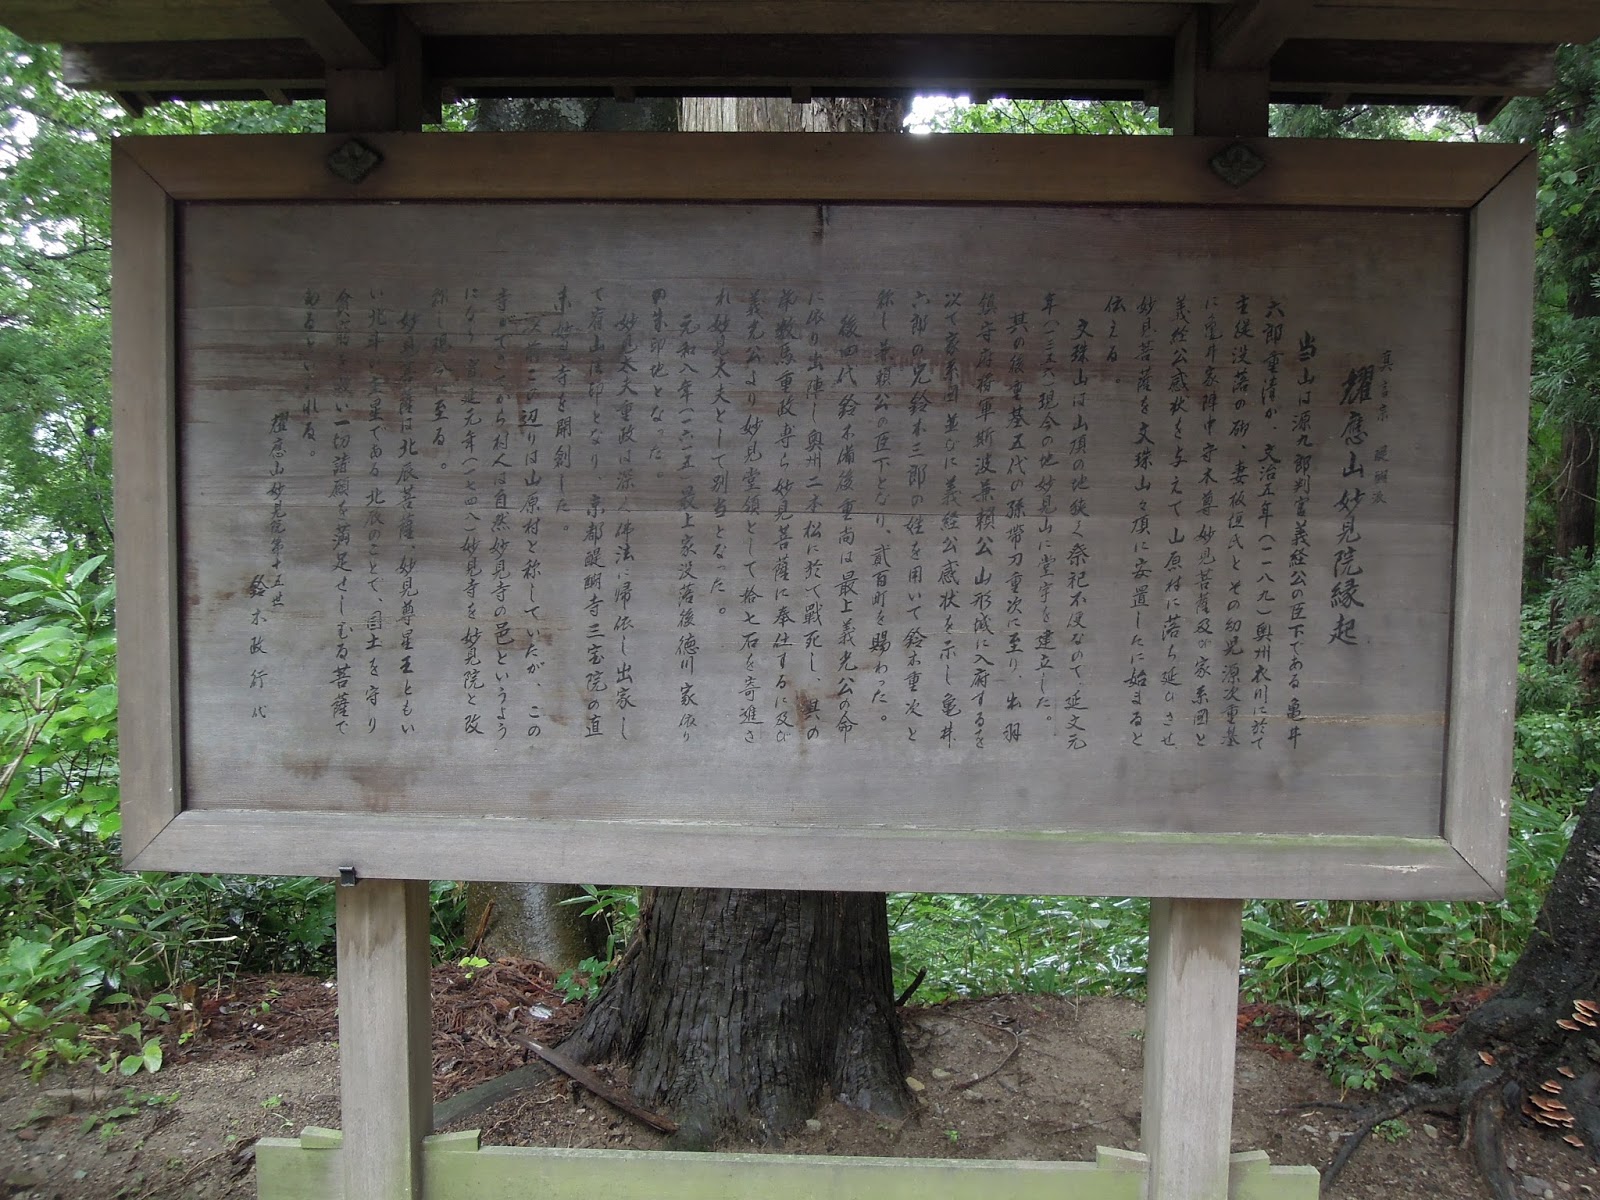 真言宗 醍醐派
耀應山妙見院縁起
当山は源九郎判官義経公の臣下である亀井
六郎重清が、文治五年(一一八九)奥州衣川に於て
主従没落の砌、妻板垣氏とその幼児源次重基
に亀井家陣中守本尊妙見菩薩及び家系図と
義経公感状を与えて山原村に落ち延びさせ
妙見菩薩を文珠山々頂に安置したに始まると
伝える。
文珠山は山頂の地狭く祭祀不便なので、延文元
年(一三五六)現今の地妙見山に堂宇を建立した。
其の後重基五代の孫帯刀重次に至り、出羽
鎮守府将軍斯波兼頼公山形城に入府するを
次て家系図並びに義経公感状を示し亀井
六郎の兄鈴木三郎の姓を用いて鈴木重次と
称し兼頼公の臣下となり、貳百町を賜わった。
後四代鈴木備後重尚は最上義光公の命
に依り出陣し奥州二本松に於て戰死し、其の
弟数馬重政専ら妙見菩薩に奉仕するに及び
義光公より妙見堂領として拾七石を寄進さ
れ妙見大夫として別当となった。
元和八年(一六二五)最上家没落後徳川家依り
の朱印地となった。
妙見大夫重政は深く佛法に帰依し出家し
て宿山法印となり、京都醍醐寺三宝院の直
末妙見寺を開創した。
以前この辺りは山原村と称していたが、この
寺ができてから村人は自然妙見寺の邑というよう
になり、寛延元年(一七四八)妙見寺を妙見院と改
称し現今に至る。
妙見菩薩は北辰菩薩、妙見尊星王ともい
い北斗七星である北辰のことで、国土を守り
貧窮を救い一切諸願を満足せしむる菩薩で
あるといわれる。
耀應山妙見院第十五世
鈴木政行代